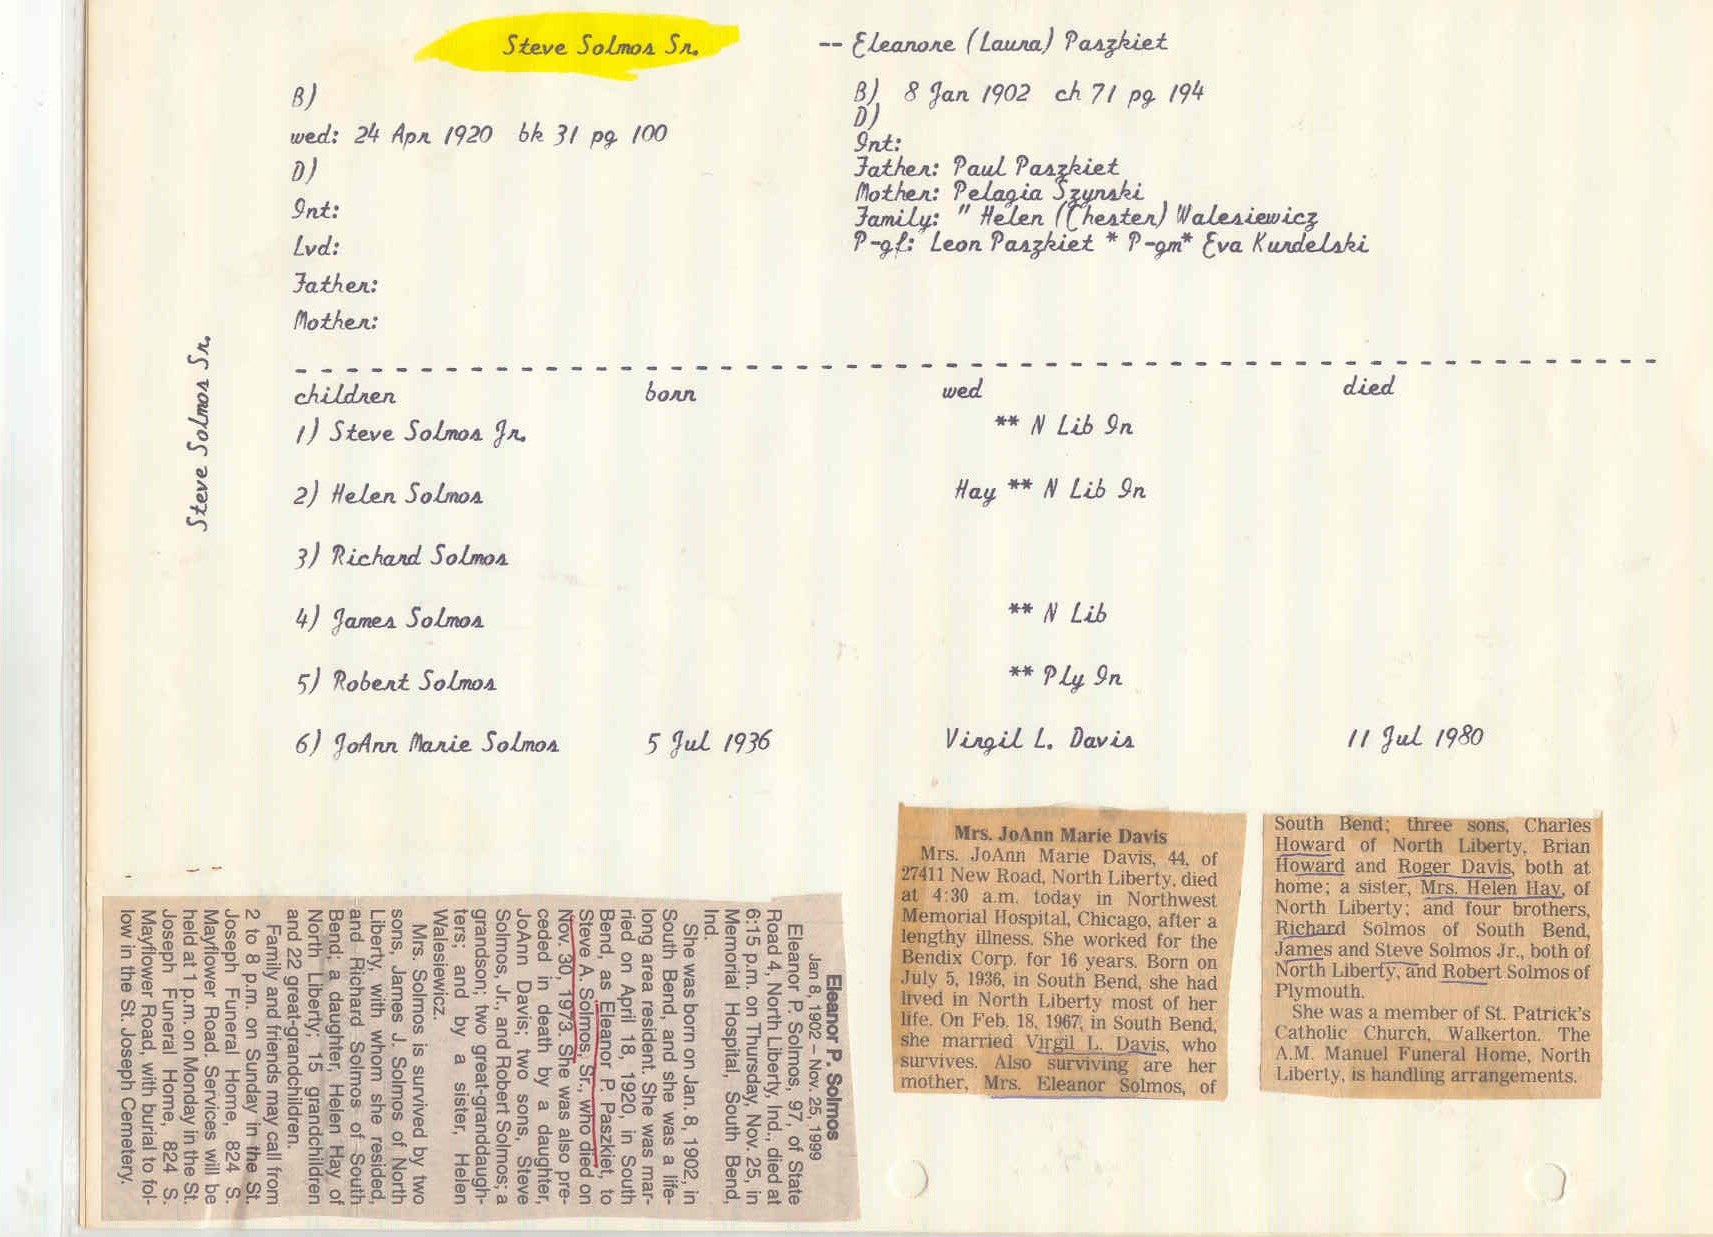 Steve Solmos Sr.
-- Eleanore (Laura) Paszkiet
B)
wed: 24 Apr 1920 bk 31 pg 100
D)
Int:
Lvd:
Father:
Mother:
B) 8 Jan 1902 ch 71 pg 194
D)
Int:
Father: Paul Paszkiet
Mother: Pelagia Szynski
Family: " Helen (Chester) Walesiewicz
P-gf: Leon Paszkiet * P-gm* Eva Kurdelski
Steve Solmos Sr.
children born wed died
1) Steve Solmos Jr. ** N Lib In
2) Helen Solmos Hay ** N Lib In
3) Richard Solmos
4) James Solmos ** N Lib
5) Robert Solmos ** Ply In
6) JoAnn Marie Solmos 5 Jul 1936 Virgil L. Davis 11 Jul 1980
Eleanor P. Solmos
Jan 8, 1902 – Nov. 25, 1999
Eleanor P. Solmos, 97, of State
Road 4, North Liberty, Ind., died at
6:15 p.m. on Thursday, Nov. 25, in
Memorial Hospital, South Bend,
Ind.
She was born on Jan. 8, 1902, in
South Bend, and she was a life-
long area resident. She was mar-
ried on April 18, 1920, in South
Bend, as Eleanor P. Paszkiet, to
Steve A. Solmos, Sr., who died on
Nov. 30, 1973. She was also pre-
ceded in death by a daughter,
JoAnn Davis; two sons, Steve
Solmos, Jr., and Robert Solmos; a
grandson; two great-granddaugh-
ters; and by a sister, Helen
Walesiewicz.
Mrs. Solmos is survived by two
sons, James J. Solmos of North
Liberty, with whom she resided,
and Richard Solmos of South
Bend; a daughter, Helen Hay of
North Liberty; 15 grandchildren
and 22 great-grandchildren.
Family and friends may call from
2 to 8 p.m. on Sunday in the St.
Joseph Funeral Home, 824 S.
Mayflower Road. Services will be
held at 1 p.m. on Monday in the St.
Joseph Funeral Home, 824 S.
Mayflower Road, with burial to fol-
low in the St. Joseph Cemetery.
Mrs. JoAnn Marie Davis
Mrs. JoAnn Marie Davis, 44, of
27411 New Road, North Liberty, died
at 4:30 a.m. today in Northwest
Memorial Hospital, Chicago, after a
lengthy illness. She worked for the
Bendix Corp. for 16 years. Born on
July 5, 1936, in South Bend, she had
lived in North Liberty most of her
life. On Feb. 18, 1967, in South Bend,
she married Virgil L. Davis, who
survives. Also surviving are her
mother, Mrs. Eleanor Solmos, of
South Bend; three sons, Charles
Howard of North Liberty, Brian
Howard and Roger Davis, both at
home; a sister, Mrs. Helen Hay, of
North Liberty; and four brothers,
Richard Solmos of South Bend,
James and Steve Solmos Jr., both of
North Liberty, and Robert Solmos of
Plymouth.
She was a member of St. Patrick's
Catholic Church, Walkerton. The
A.M. Manuel Funeral Home, North
Liberty, is handling arrangements.